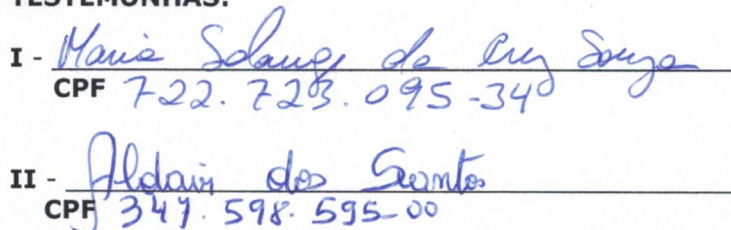 TESTEMUNHAS:
I - Maria Solange da Cruz Souza
CPF 722.723.095-34
II - Aldair dos Santos
CPF 347.598.595-00